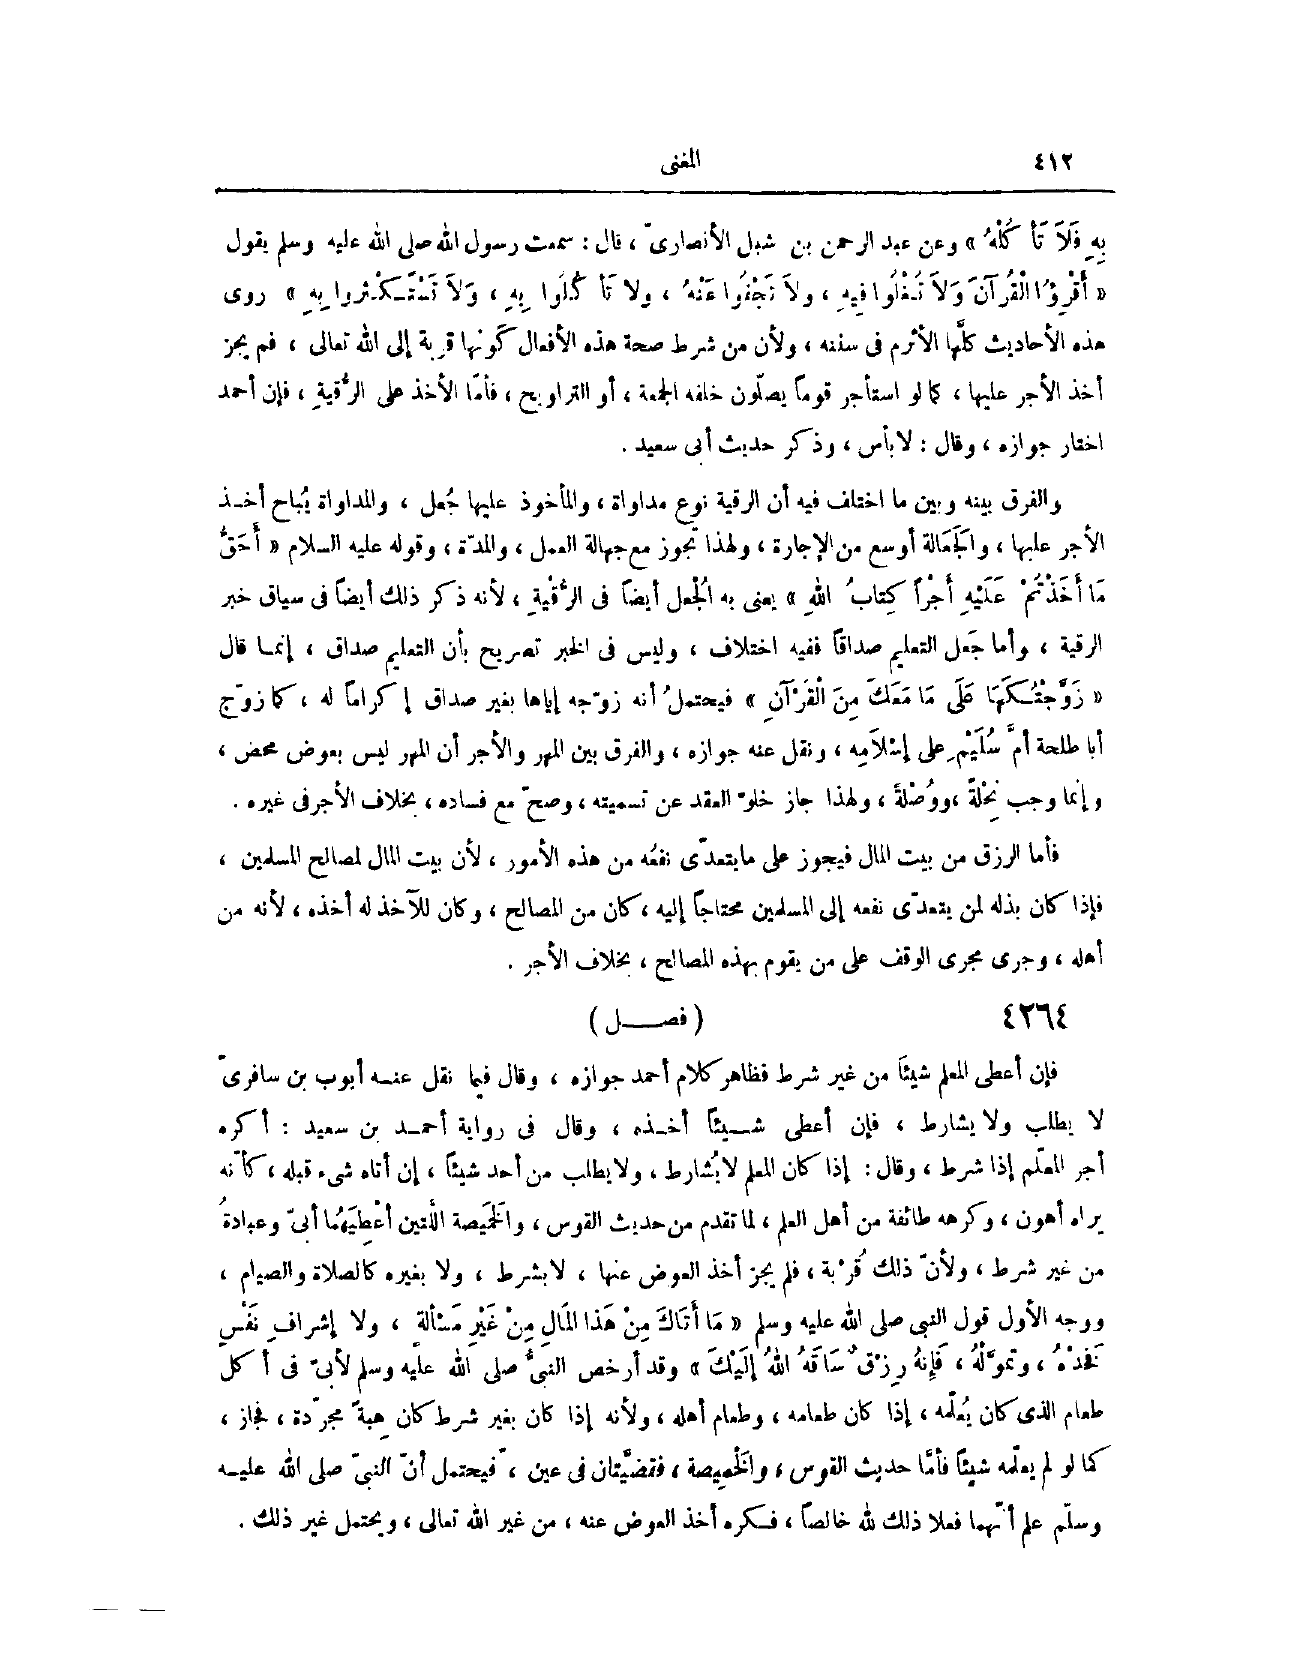 ٤١٢ المغنى
بِهِ فَلَا تَأْكُلْهُ » وعن عبد الرحمن بن شبل الأنصارىّ ، قال : سمعت رسول الله صلى الله عليه وسلم يقول
« أَقْرِؤُا الْقُرآنَ وَلَا تَغْلُوا فِيهِ ، ولَا تَجْفُوا عَنْهُ ، ولا تَأْكُلُوا بِهِ ، وَلَا تَسْتَكْثِروا بِهِ » روى
هذه الأحاديث كلَّها الأثرم فى سننه ، ولأن من شرط صحة هذه الأفعال كَونها قربة إلى الله تعالى ، فم يجز
أخذ الأجر عليها ، كما لو استأجر قوماً يصلّون خلفه الجمعة ، أو التراويح ، فأمّا الأخذ على الرُّقيةِ ، فإن أحمد
اختار جوازه ، وقال : لا بأس ، وذكر حديث أبى سعيد .
والفرق بينه وبين ما اختلف فيه أن الرقية نوع مداواة ، والمأخوذ عليها جُعل ، والمداواة يُباح أخذ
الأجر عليها ، والجَعالة أوسع من الإجارة ، ولهذا تجوز مع جهالة العمل ، والمدّة ، وقوله عليه السلام « أَحَقُّ
مَا أَخَذْتُمْ عَلَيْهِ أَجْراً كِتابُ اللهِ » يعنى به الُجْعل أيضاً فى الرُّقْيةِ ، لأنه ذكر ذلك أيضاً فى سياق خبر
الرقية ، وأما جَعل التعليم صداقاً ففيه اختلاف ، وليس فى الخبر تصريح بأن التعليم صداق ، إنما قال
« زَوَّجْتُكَهَا عَلَى مَا مَعَكَ مِنَ الْقَرْآنِ » فيحتملُ أنه زوّجه إياها بغير صداق إكراماً له ، كما زوّج
أبا طلحة أمَّ سُلَيْمٍ على إسْلاَمِه ، ونقل عنه جوازه ، والفرق بين المهر والأجر أن المهر ليس بعوض محض ،
وإنما وجب نِحْلةً ، ووُصْلةً ، ولهذا جاز خلوّ العقد عن تسميته ، وصحّ مع فساده ، بخلاف الأجر فى غيره .
فأما الرزق من بيت المال فيجوز على ما يتعدّى نفعُه من هذه الأمور ، لأن بيت المال لمصالح المسلمين ،
فإذا كان بذله لمن يتعدّى نفعه إلى المسلمين محتاجاً إليه ، كان من المصالح ، وكان للآخذ له أخذه ، لأنه من
أهله ، وجرى مجرى الوقف على من يقوم بهذه المصالح ، بخلاف الأجر .
٤٢٦٤ ( فصــل )
فإن أعطى المعلم شيئاً من غير شرط فظاهر كلام أحمد جوازه ، وقال فيما نقل عنه أيوب بن سافرىّ
لا يطلب ولا يشارط ، فإن أعطى شيئاً أخذه ، وقال فى رواية أحمد بن سعيد : أكره
أجر المعلّم إذا شرط ، وقال : إذا كان المعلم لا يُشارط ، ولا يطلب من أحد شيئاً ، إن أتاه شىء قبله ، كأنّه
يراه أهون ، وكرهه طائفة من أهل العلم ، لما تقدم من حديث القوس ، والخَميصة اللَّتين أعْطِيَهُما أبىّ وعبادةُ
من غير شرط ، ولأنّ ذلك قُرْبة ، فلم يجز أخذ العوض عنها ، لا بشرط ، ولا بغيره كالصلاة والصيام ،
ووجه الأول قول النبى صلى الله عليه وسلم « مَا أَتَاكَ مِنْ هَذا المَالِ مِنْ غَيْرِ مَسْألةٍ ، ولا إشرافِ نَفْسٍ
فَخذْهُ ، وتموّلْهُ ، فَإِنهُ رِزْقٌ سَاقَهُ اللهُ إِلَيْكَ » وقد أرخص النبىُّ صلى الله عليه وسلم لأبىّ فى أكل
طعام الذى كان يُعلّمه ، إذا كان طعامه ، وطعام أهله ، ولأنه إذا كان بغير شرط كان هِبةً مجرّدة ، فجاز ،
كما لو لم يعلّمه شيئاً فأمّا حديث القوس ، والخَميصة ، فقضيّتان فى عين ، فيحتمل أنّ النبىّ صلى الله عليه
وسلّم علم أنّهما فعلا ذلك لله خالصاً ، فكره أخذ العوض عنه ، من غير الله تعالى ، ويحتمل غير ذلك .